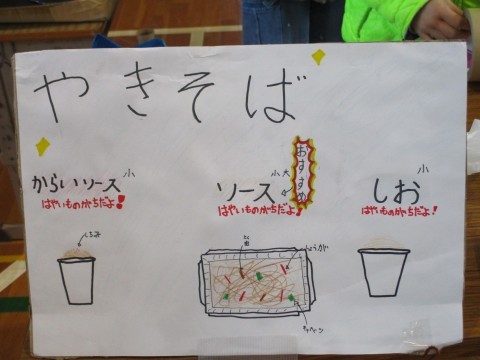 やきそば
からいソース 小
はやいものがちだよ!
ソース 小 大
おすすめ
はやいものがちだよ!
しお 小
はやいものがちだよ!
しょうが